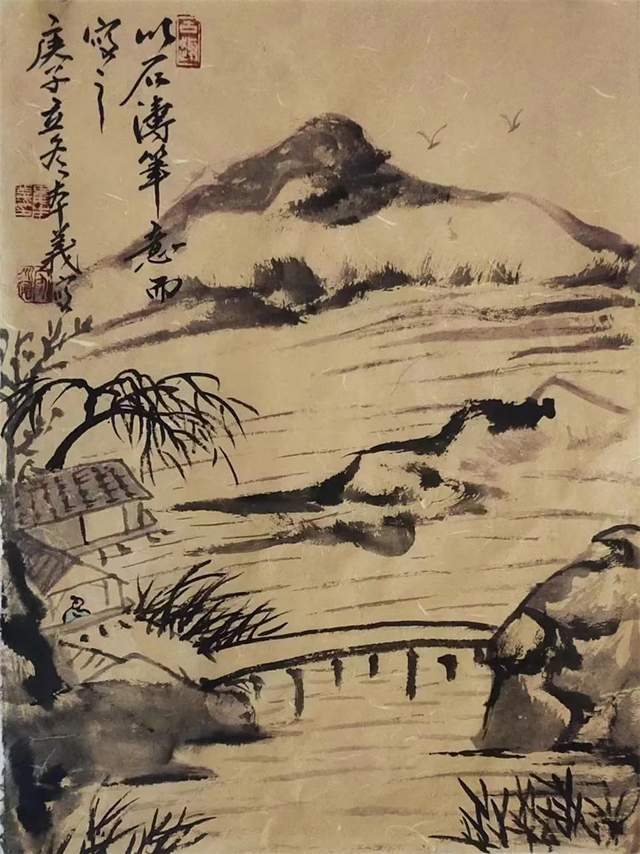 以石濤筆意而
寫之
庚子立冬本義写